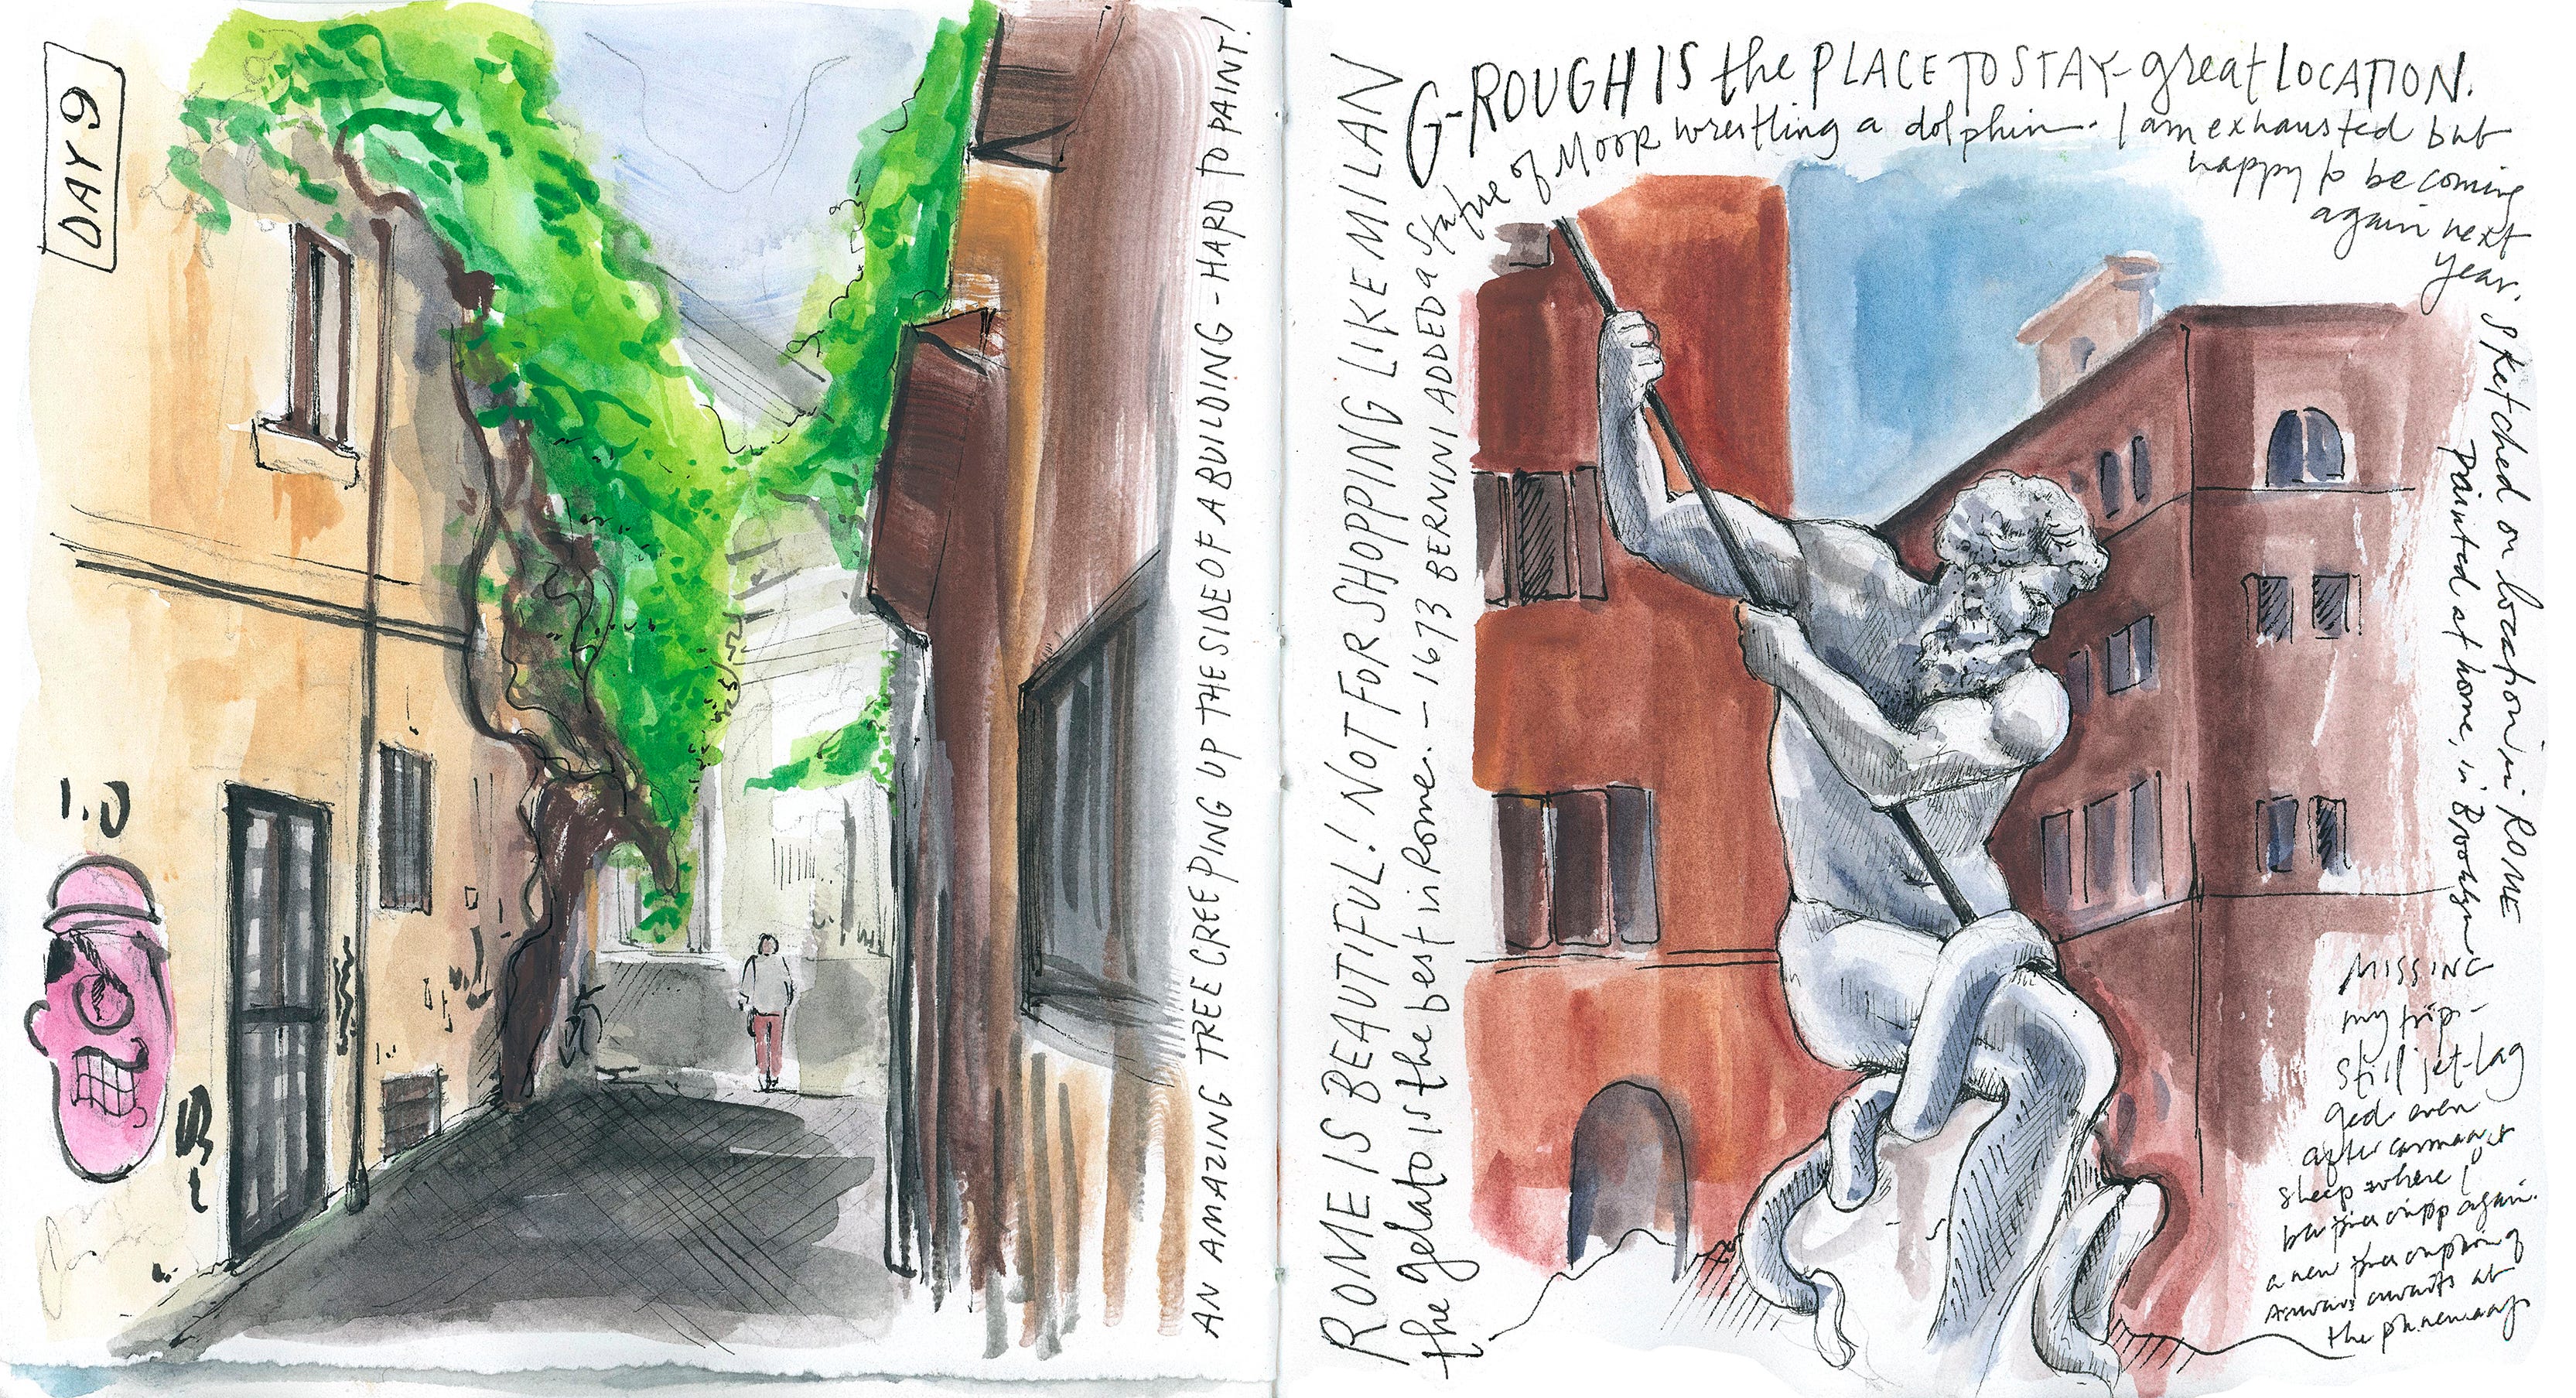 DAY 9
AN AMAZING TREE CREEPING UP THE SIDE OF A BUILDING - HARD TO PAINT!
ROME IS BEAUTIFUL! NOT FOR SHOPPING LIKE MILAN
G-ROUGH IS the PLACE TO STAY - great LOCATION.
the gelato is the best in Rome. - 1673 BERNINI ADDED a Statue of Moor wrestling a dolphin. I am exhausted but
happy to be coming
again next
year. Sketched on location in ROME
painted at home, in Brooklyn
MISSING
my trip -
still jet-lag
ged even
after
sleep where I
again.
a new
awaits at
the